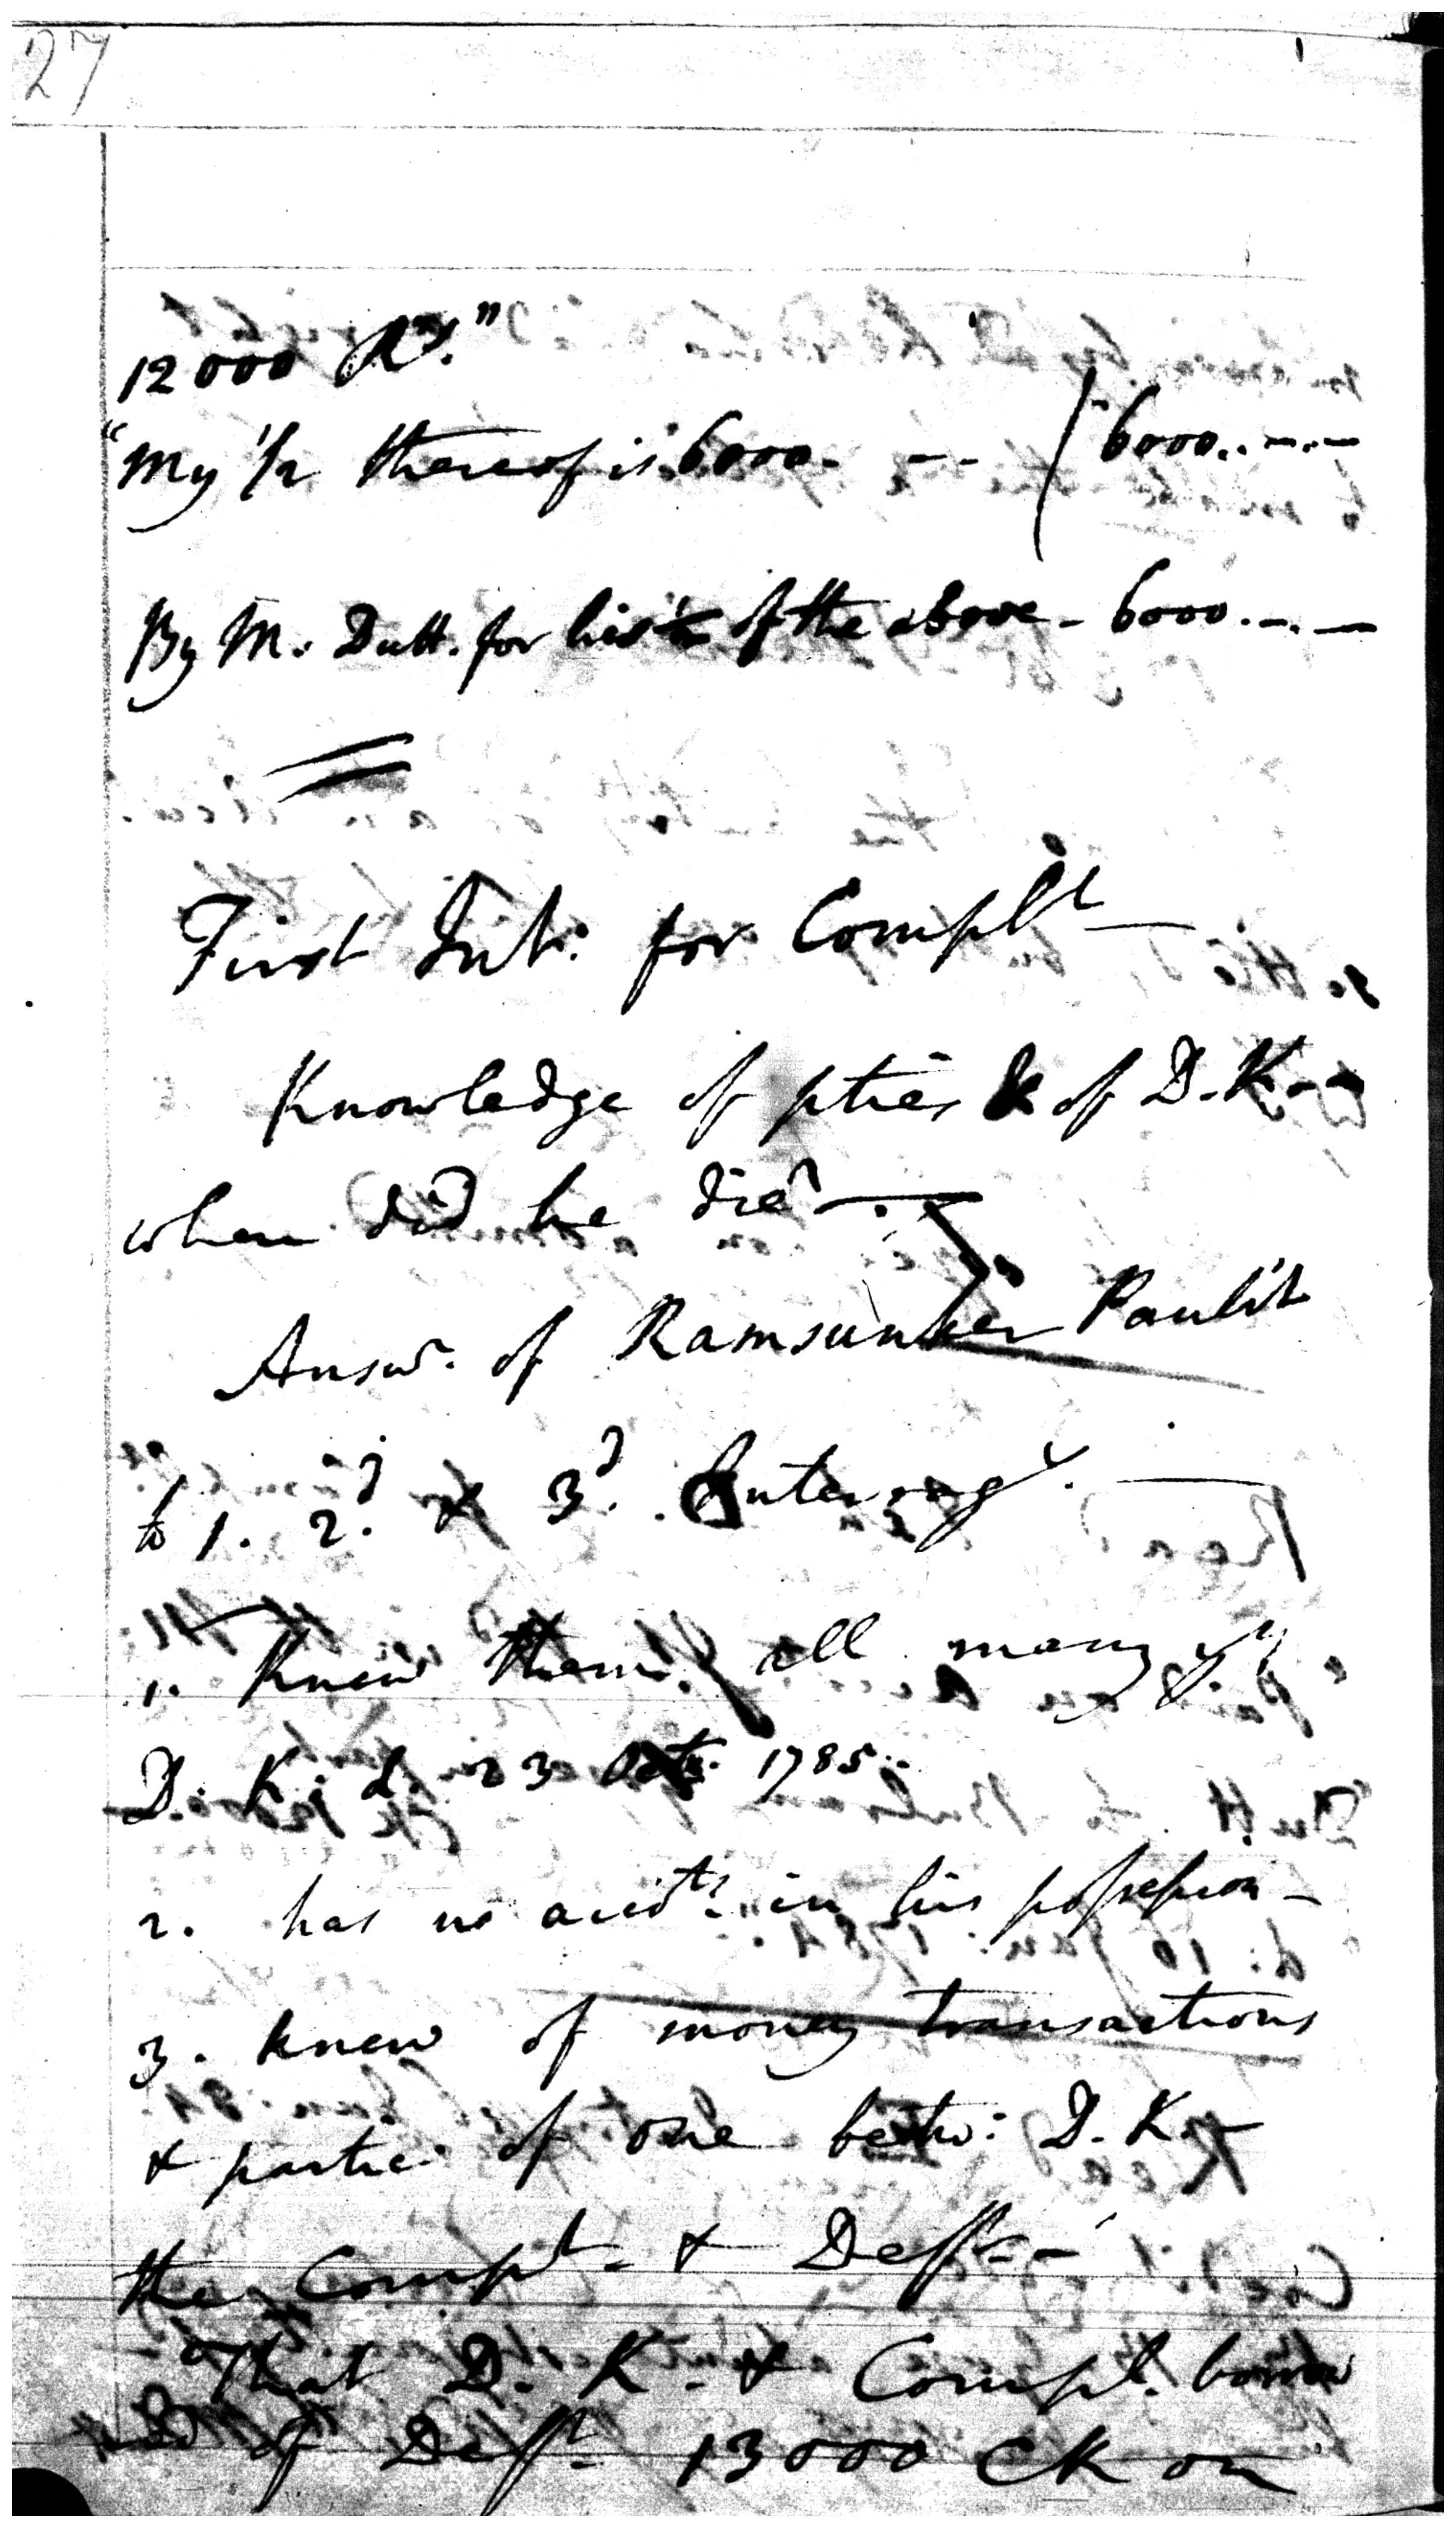 27
12000 Rs."
"My 1/2 thereof is 6000. - - ( 6000..-.-
By M. Dutt. for his 1/2 of the above - 6000.-.-
First Int: for Complt
Knowledge of pties & of D. K -
when did he die? -
Answr. of Ramsunker Paulit
to 1. 2d. & 3d. Interrogy.
1. Knew them all many yrs
D. K. d. 23 Octr. 1785.
2. has no accots. in his possession -
3. knew of money transactions
& partic: of one betw: D. K. -
the Complt. & Defft. -
That D. K. & Complt. borrow
ed of Defft. 13000 CR on